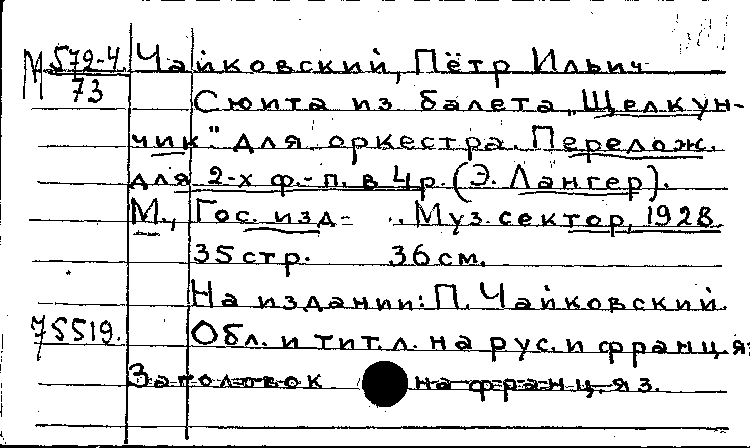 М 572-4 Чайковский, Пётр Ильич
73
Сюита из балета „Щелкун-
чик" для оркестра. Перелож.
для 2-х ф.-п. в 4 р. (Э. Лангер).
М., Гос. изд- . Муз. сектор, 1928.
35 стр. 36 см.
На издании: П. Чайковский.
75519. Обл. и тит. л. на рус. и франц. яз
Заголовок на франц. яз.